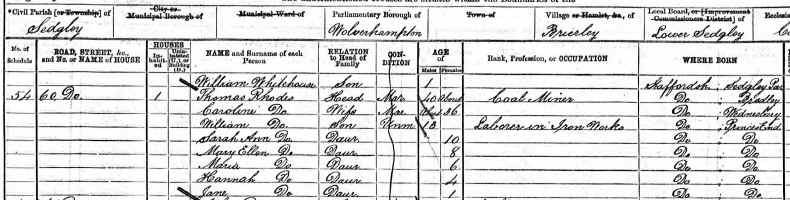 Civil Parish [or Township] of
City or Municipal Borough of
Municipal Ward of
Parliamentary Borough of
Town of
Village or Hamlet, &c., of
Local Board, or [Improvement Commissioners District] of
Sedgley
Wolverhampton
Brierley
Lower Sedgley
No. of Schedule
ROAD, STREET, &c., and No. or NAME of HOUSE
HOUSES
Inhabited
Uninhabited (U.), or Building (B.)
NAME and Surname of each Person
RELATION to Head of Family
CONDITION
AGE of
Males
Females
Rank, Profession, or OCCUPATION
WHERE BORN
William Whitehouse Son 1 Staffordsh; Sedgley Par
54 60 Do. 1 Thomas Rhodes Head Mar 40 Coal Miner Do ; Bradley
Caroline Do. Wife Mar 36 Do ; Wednesbury
William Do. Son Unm 13 Laborer in Iron Works Do ; Princes End
Sarah Ann Do Daur 10 Do ; Do
Mary Ellen Do Daur 8 Do ; Do
Maria Do Daur 6 Do ; Do
Hannah Do Daur 4 Do ; Do
Jane Do Daur 1 Do ; Do